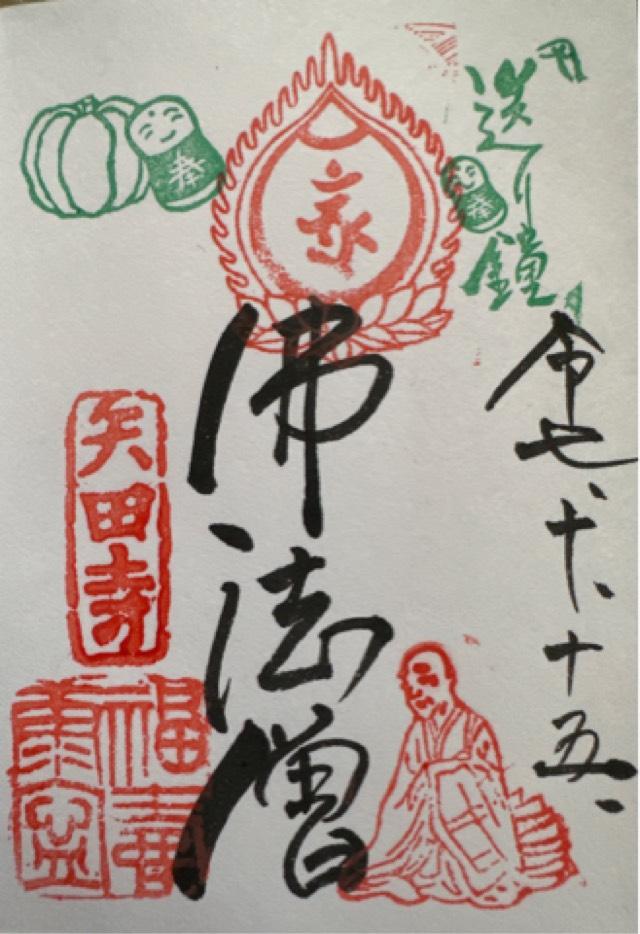 送り鐘
奉
奉
令七、十、十五、
佛法僧
矢田寺
福壽
康寧